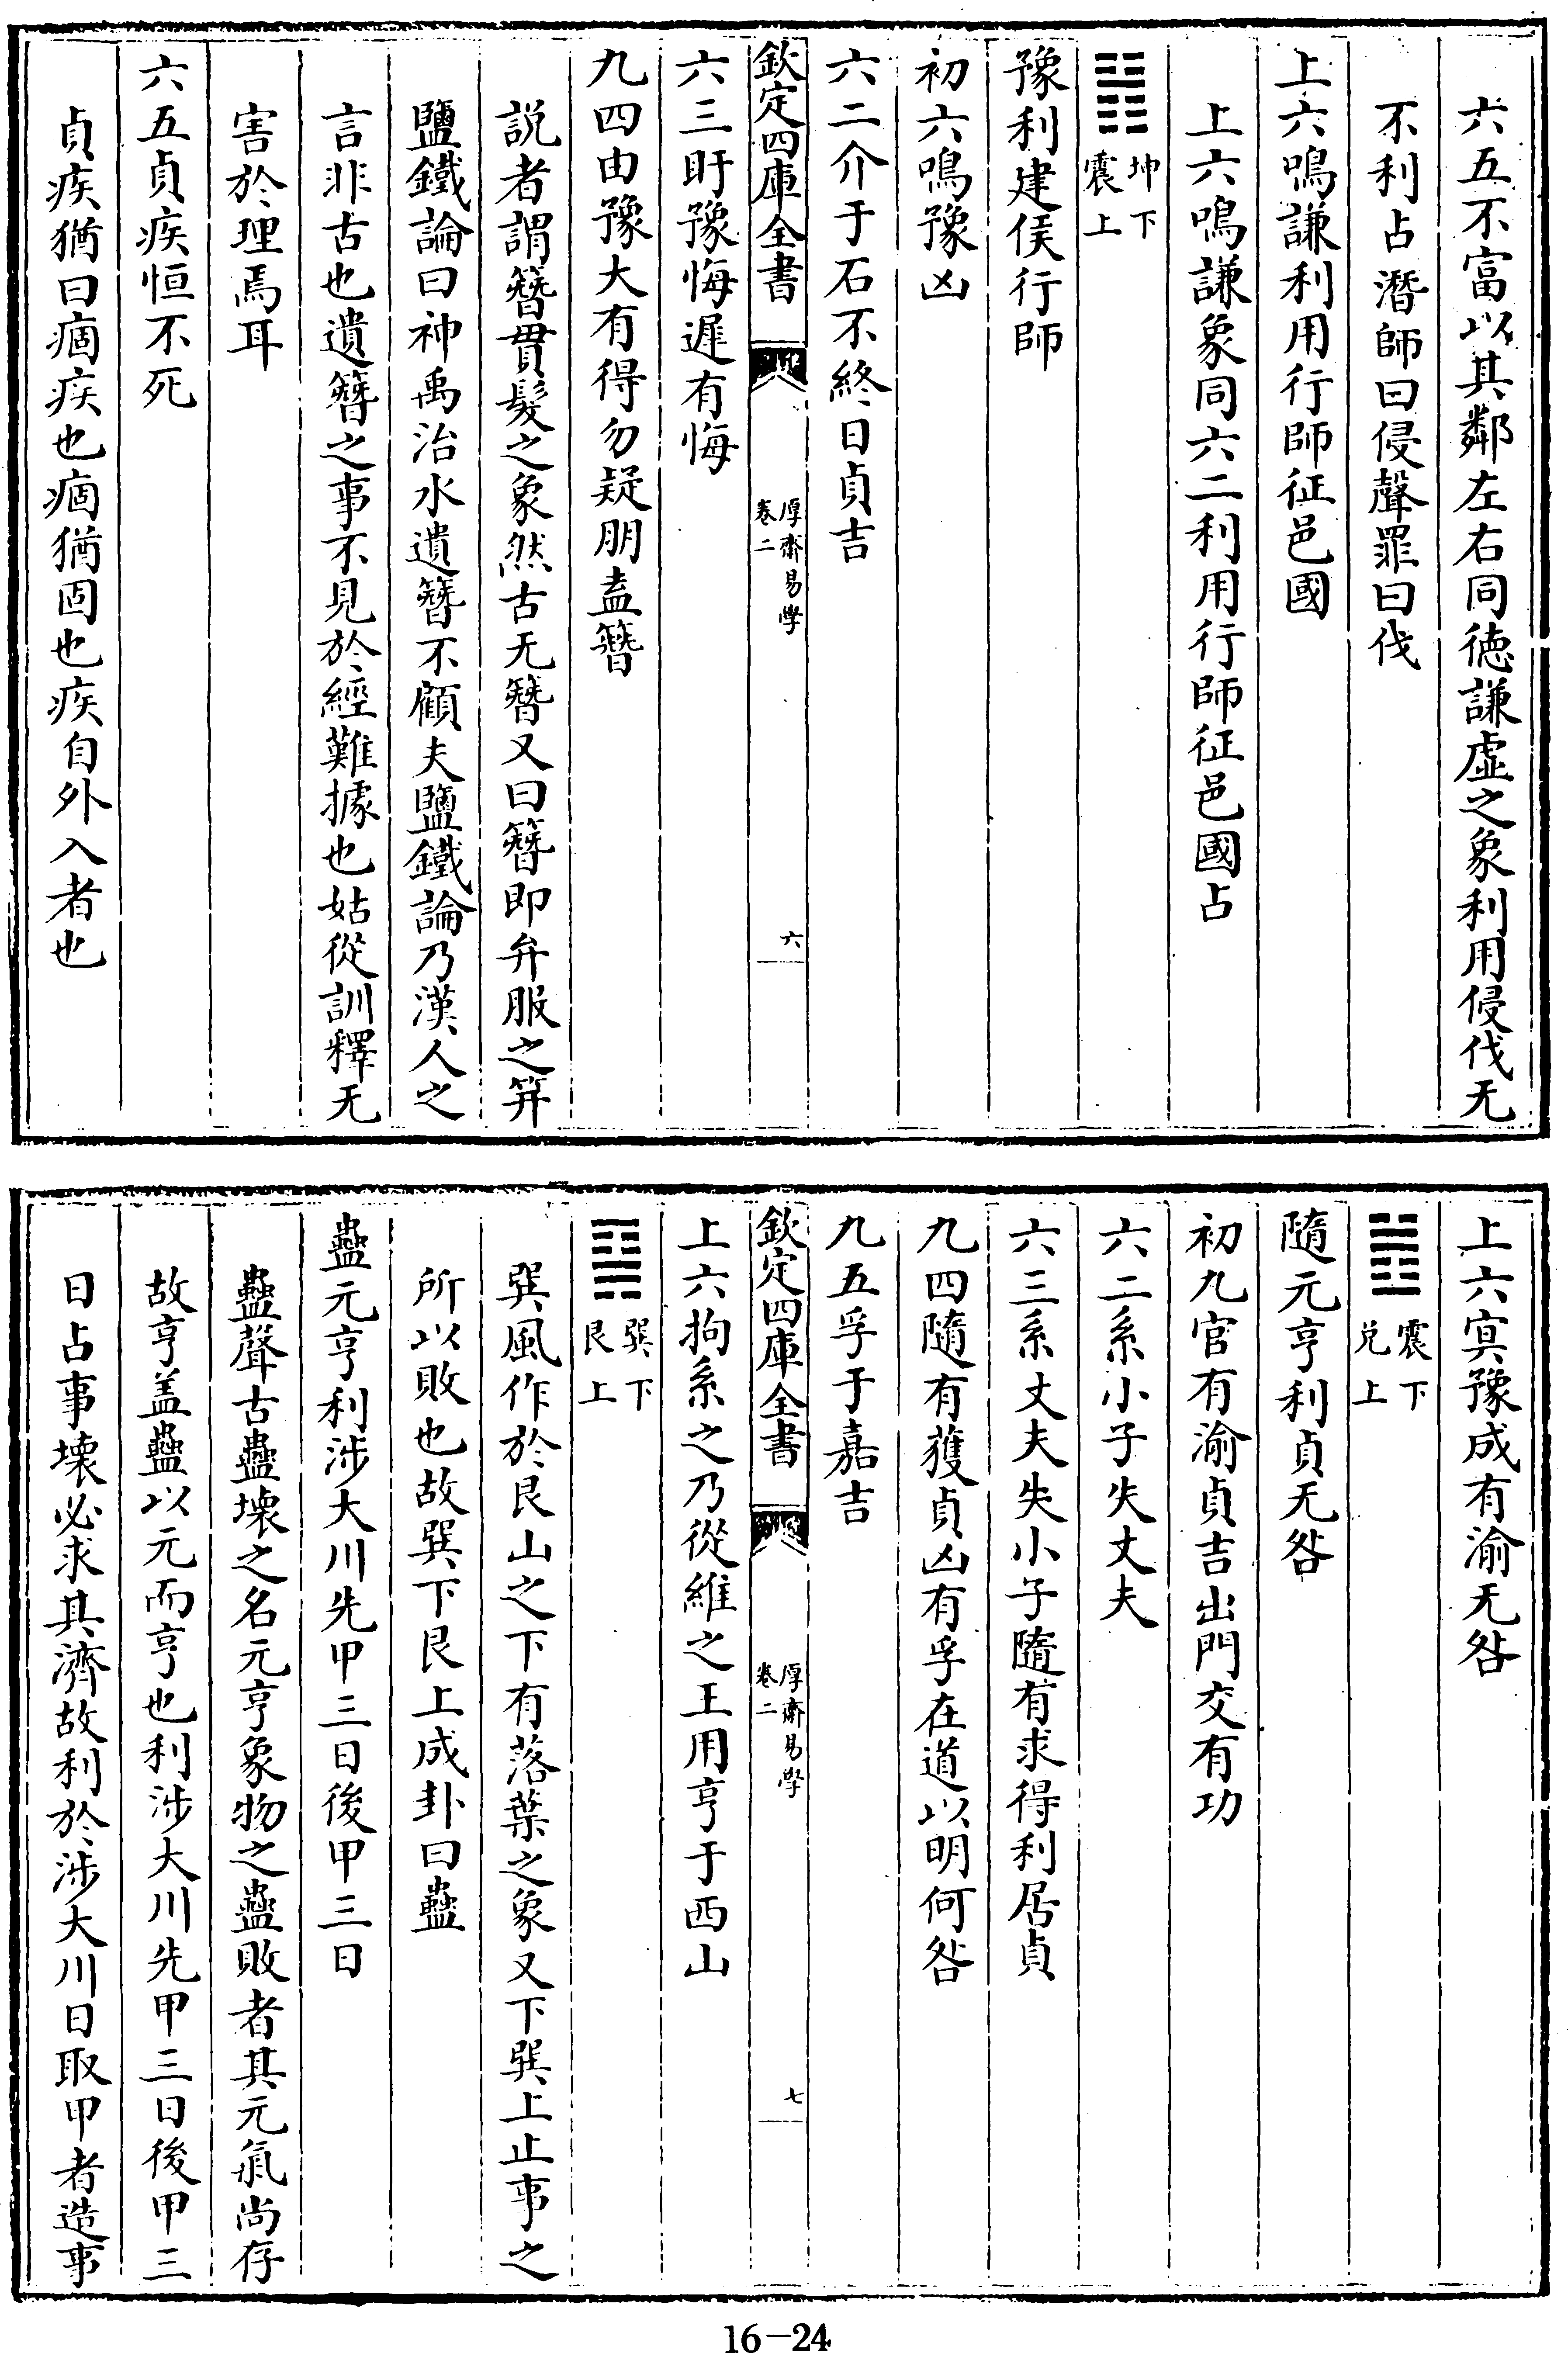 六五不富以其鄰左右同徳謙虛之象利用侵伐无
不利占潛師曰侵聲罪曰伐
上六鳴謙利用行師征邑國
上六鳴謙象同六二利用行師征邑國占
䷏坤下震上
豫利建侯行師
初六鳴豫凶
六二介于石不終日貞吉
欽定四庫全書
厚齋易學
卷二
六
六三盱豫悔遲有悔
九四由豫大有得勿疑朋盍簪
説者謂簪貫髮之象然古无簪又曰簪即弁服之笄
鹽鐵論曰神禹治水遺簪不顧夫鹽鐵論乃漢人之
言非古也遺簪之事不見於經難據也姑從訓釋无
害於理焉耳
六五貞疾恒不死
貞疾猶曰痼疾也痼猶固也疾自外入者也
上六冥豫成有渝无咎
䷐震下兌上
隨元亨利貞无咎
初九官有渝貞吉出門交有功
六二系小子失丈夫
六三系丈夫失小子隨有求得利居貞
九四隨有獲貞凶有孚在道以明何咎
九五孚于嘉吉
欽定四庫全書
厚齋易學
卷二
七
上六拘系之乃從維之王用亨于西山
䷑巽下艮上
巽風作於艮山之下有落葉之象又下巽上止事之
所以敗也故巽下艮上成卦曰蠱
蠱元亨利涉大川先甲三日後甲三日
蠱聲古蠱壊之名元亨象物之蠱敗者其元氣尚存
故亨盖蠱以元而亨也利涉大川先甲三日後甲三
日占事壊必求其濟故利於涉大川日取甲者造事
16-24